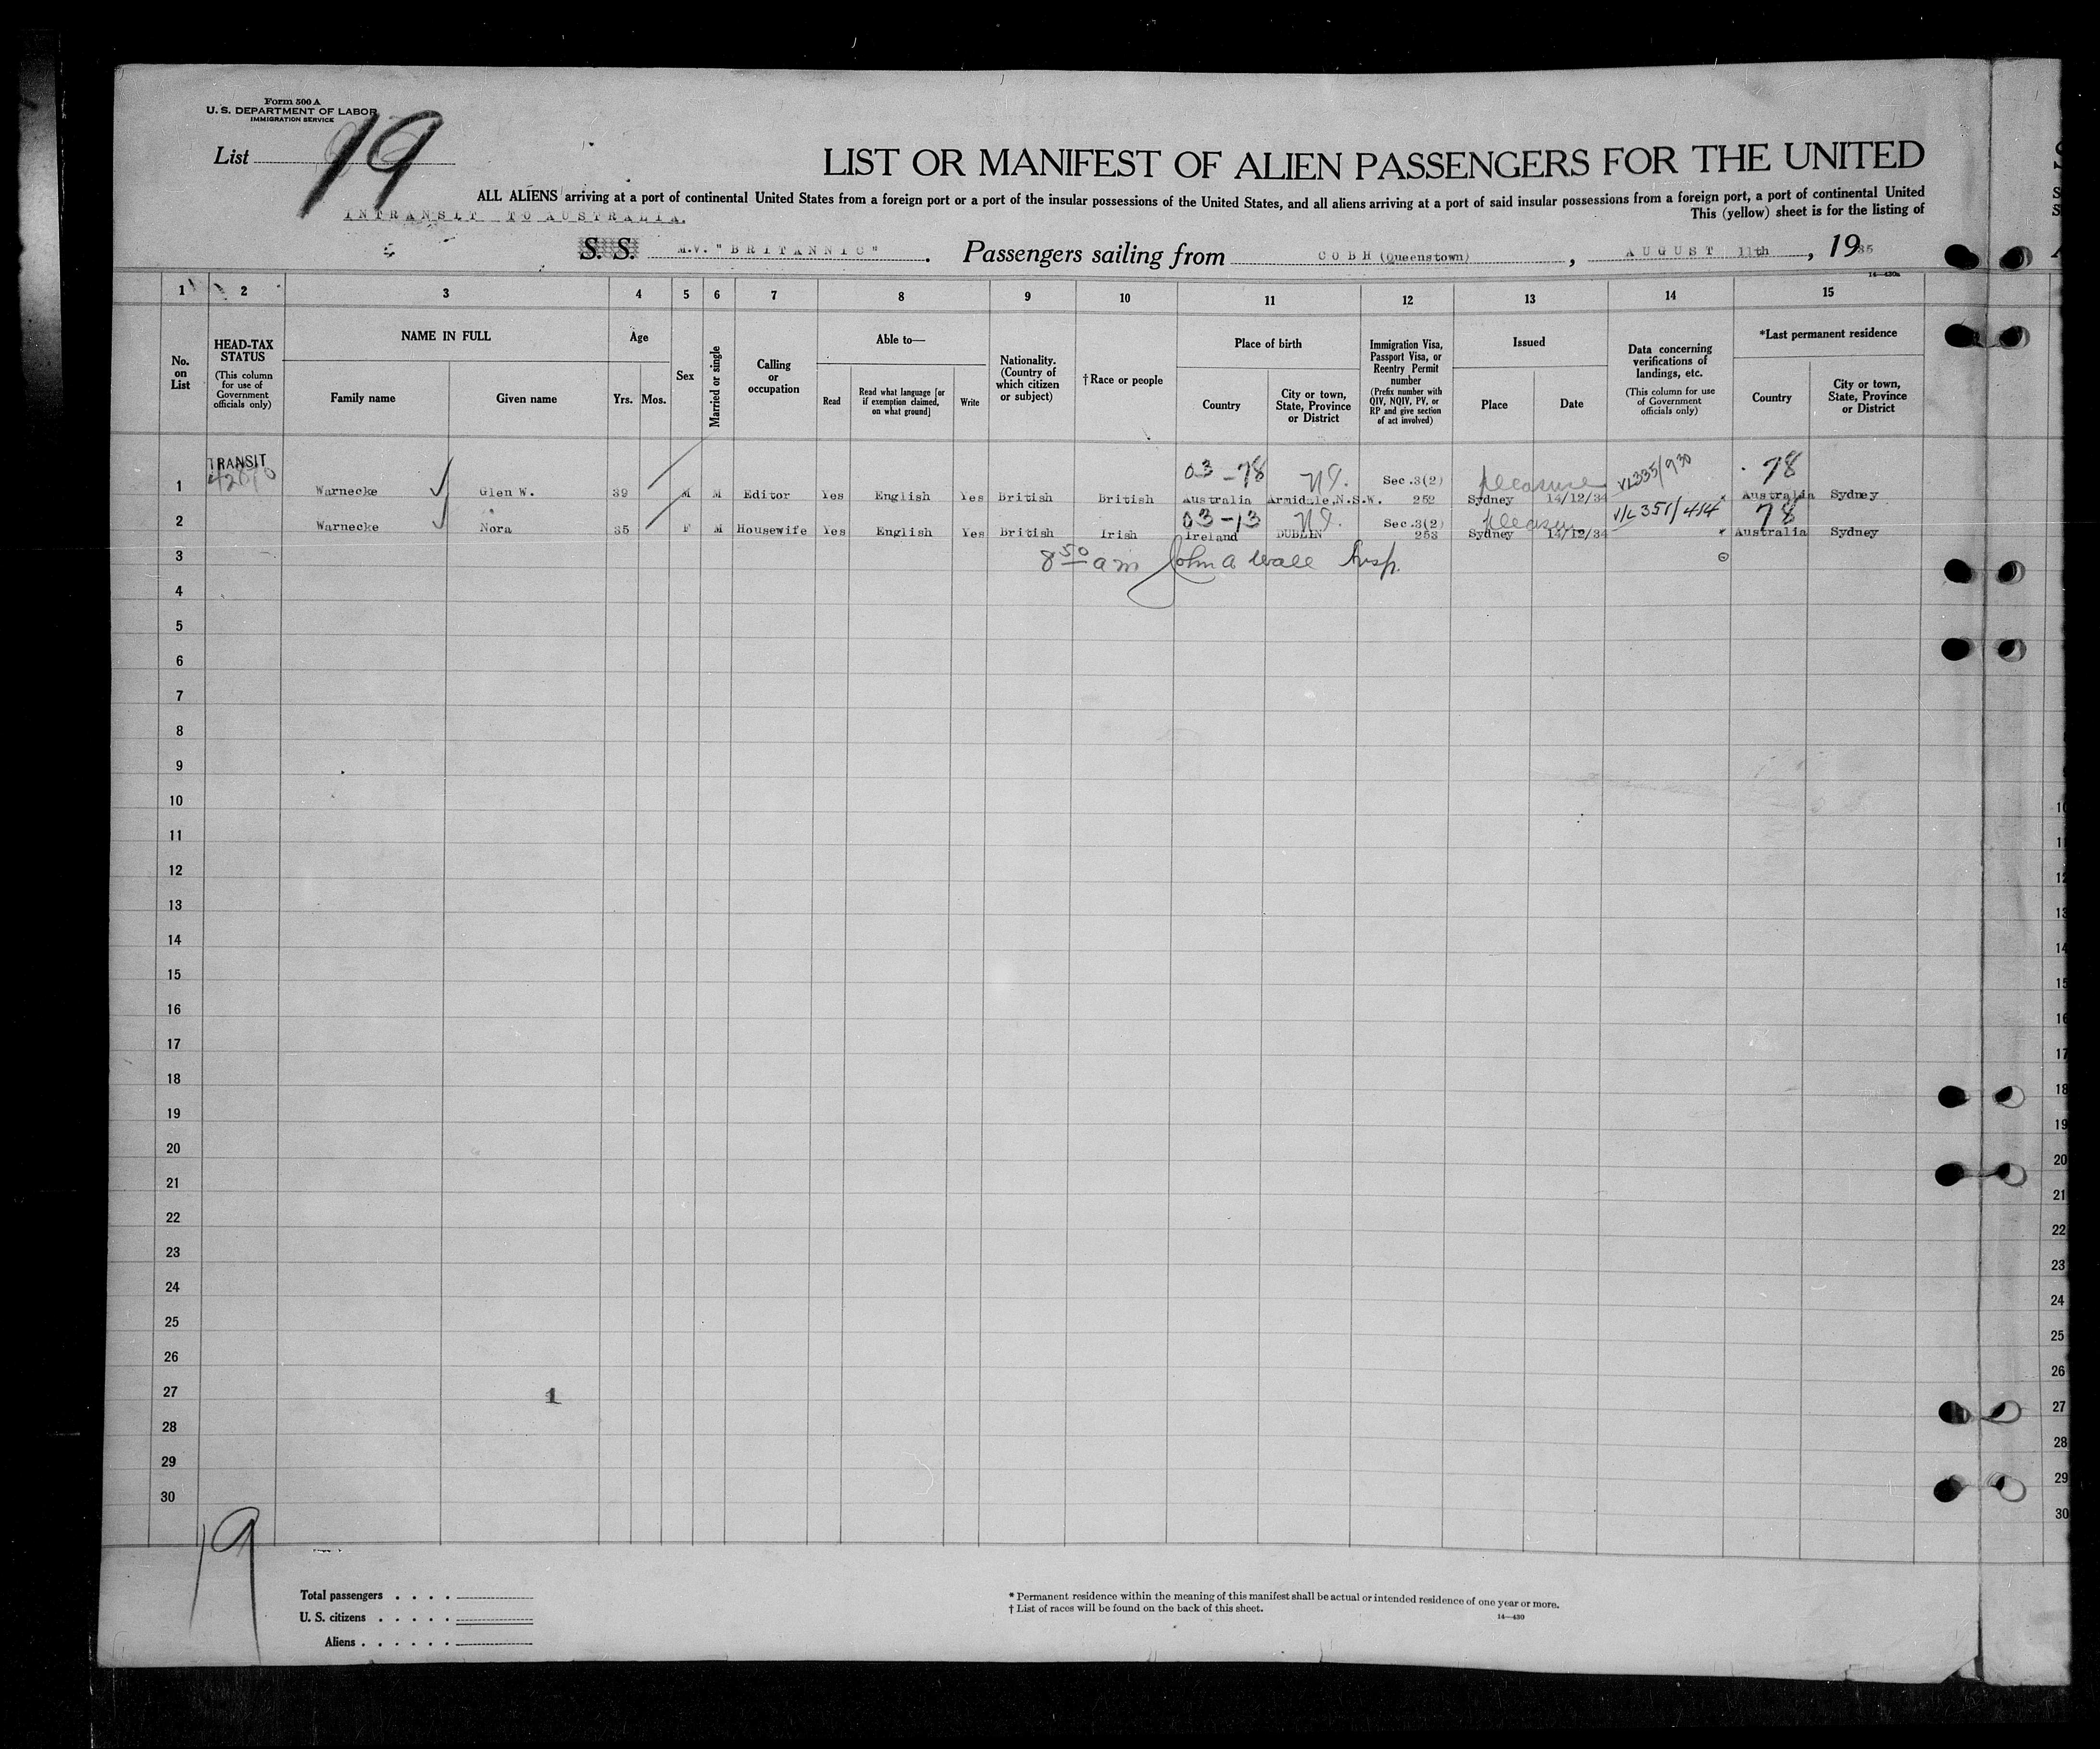 Form 500 A
U. S. DEPARTMENT OF LABOR
IMMIGRATION SERVICE
List 19
LIST OR MANIFEST OF ALIEN PASSENGERS FOR THE UNITED
ALL ALIENS arriving at a port of continental United States from a foreign port or a port of the insular possessions of the United States, and all aliens arriving at a port of said insular possessions from a foreign port, a port of continental United
This (yellow) sheet is for the listing of
INTRANSIT TO AUSTRALIA.
S. S. M.V. "BRITANNIC". Passengers sailing from COBH (Queenstown), AUGUST 11th, 1935
14-430a
1 2 3 4 5 6 7 8 9 10 11 12 13 14 15
No. on List
HEAD-TAX STATUS
(This column for use of Government officials only)
NAME IN FULL
Family name Given name
Age
Yrs. Mos.
Sex
Married or single
Calling or occupation
Able to—
Read
Read what language [or if exemption claimed, on what ground]
Write
Nationality. (Country of which citizen or subject)
†Race or people
Place of birth
Country
City or town, State, Province or District
Immigration Visa, Passport Visa, or Reentry Permit number
(Prefix number with QIV, NQIV, PV, or RP and give section of act involved)
Issued
Place Date
Data concerning verifications of landings, etc.
(This column for use of Government officials only)
*Last permanent residence
Country
City or town, State, Province or District
TRANSIT
03-78 Sec.3(2) pleasure VL335/930 78
1 Warnecke Glen W. 39 M M Editor Yes English Yes British British Australia Armidale,N.S.W. 252 Sydney 14/12/34 Australia Sydney
03-13 Sec.3(2) V/L 351/414 78
2 Warnecke Nora 35 F M Housewife Yes English Yes British Irish Ireland DUBLIN 253 Sydney 14/12/34 Australia Sydney
3 8 50 am John A Wall Insp.
4
5
6
7
8
9
10
11
12
13
14
15
16
17
18
19
20
21
22
23
24
25
26
27 1
28
29
30
19
Total passengers . . . .
U. S. citizens . . . . .
Aliens . . . . . .
* Permanent residence within the meaning of this manifest shall be actual or intended residence of one year or more.
† List of races will be found on the back of this sheet.
14—430
10
11
12
13
14
15
16
17
18
19
20
21
22
23
24
25
26
27
28
29
30